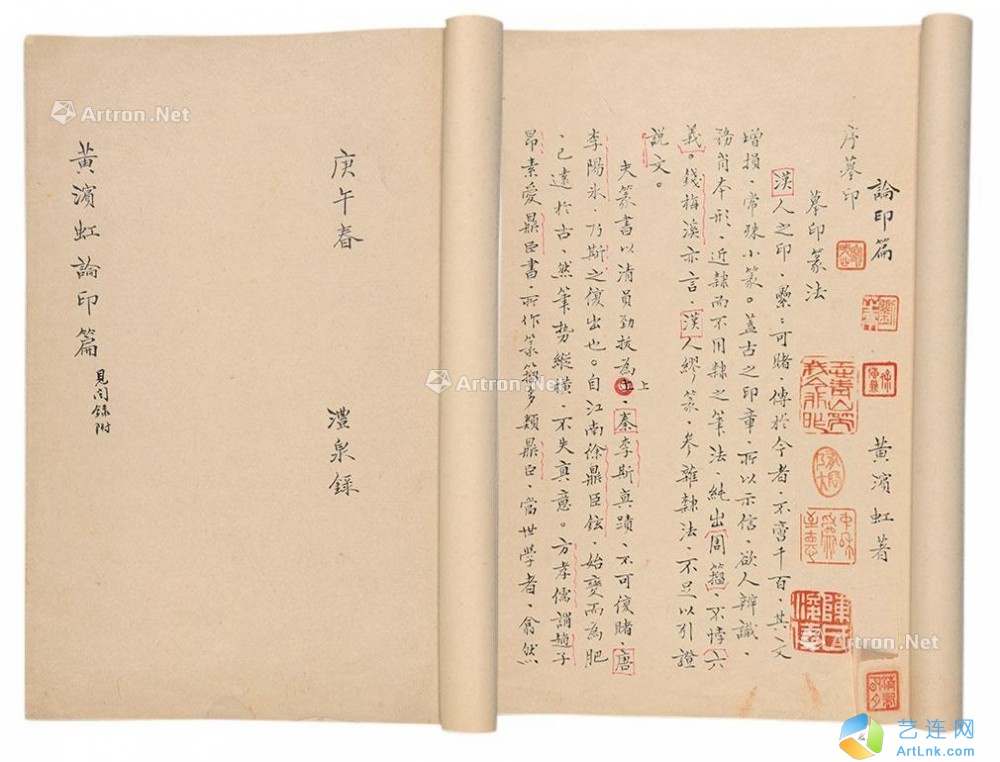 論印篇 黃濱虹著
序摹印
摹印篆法
漢人之印、纍〻可賭、傳於今者、不啻千百、其文
增損、常殊小篆。蓋古之印章、所以示信、欲人辨識、
務肖本形、近隸而不用隸之筆法、純出周籀、不悖六
義。錢梅溪亦言、漢人繆篆、參雜隸法、不足以引證
說文。
夫篆書以清員勁拔為上、秦李斯真蹟、不可復賭、唐
李陽氷、乃斯之復出也。自江南徐鼎臣鉉、始變而為肥
、已遠於古、然筆勢縱橫、不失真意。方孝儒謂趙子
昂素愛鼎臣書、所作篆籀多類鼎臣、當世學者、翕然
庚午春 澧泉錄
黃濱虹論印篇 見聞錄附
Artron.Net
Artron.Net
Artron.Net
艺连网
ArtLnk.com